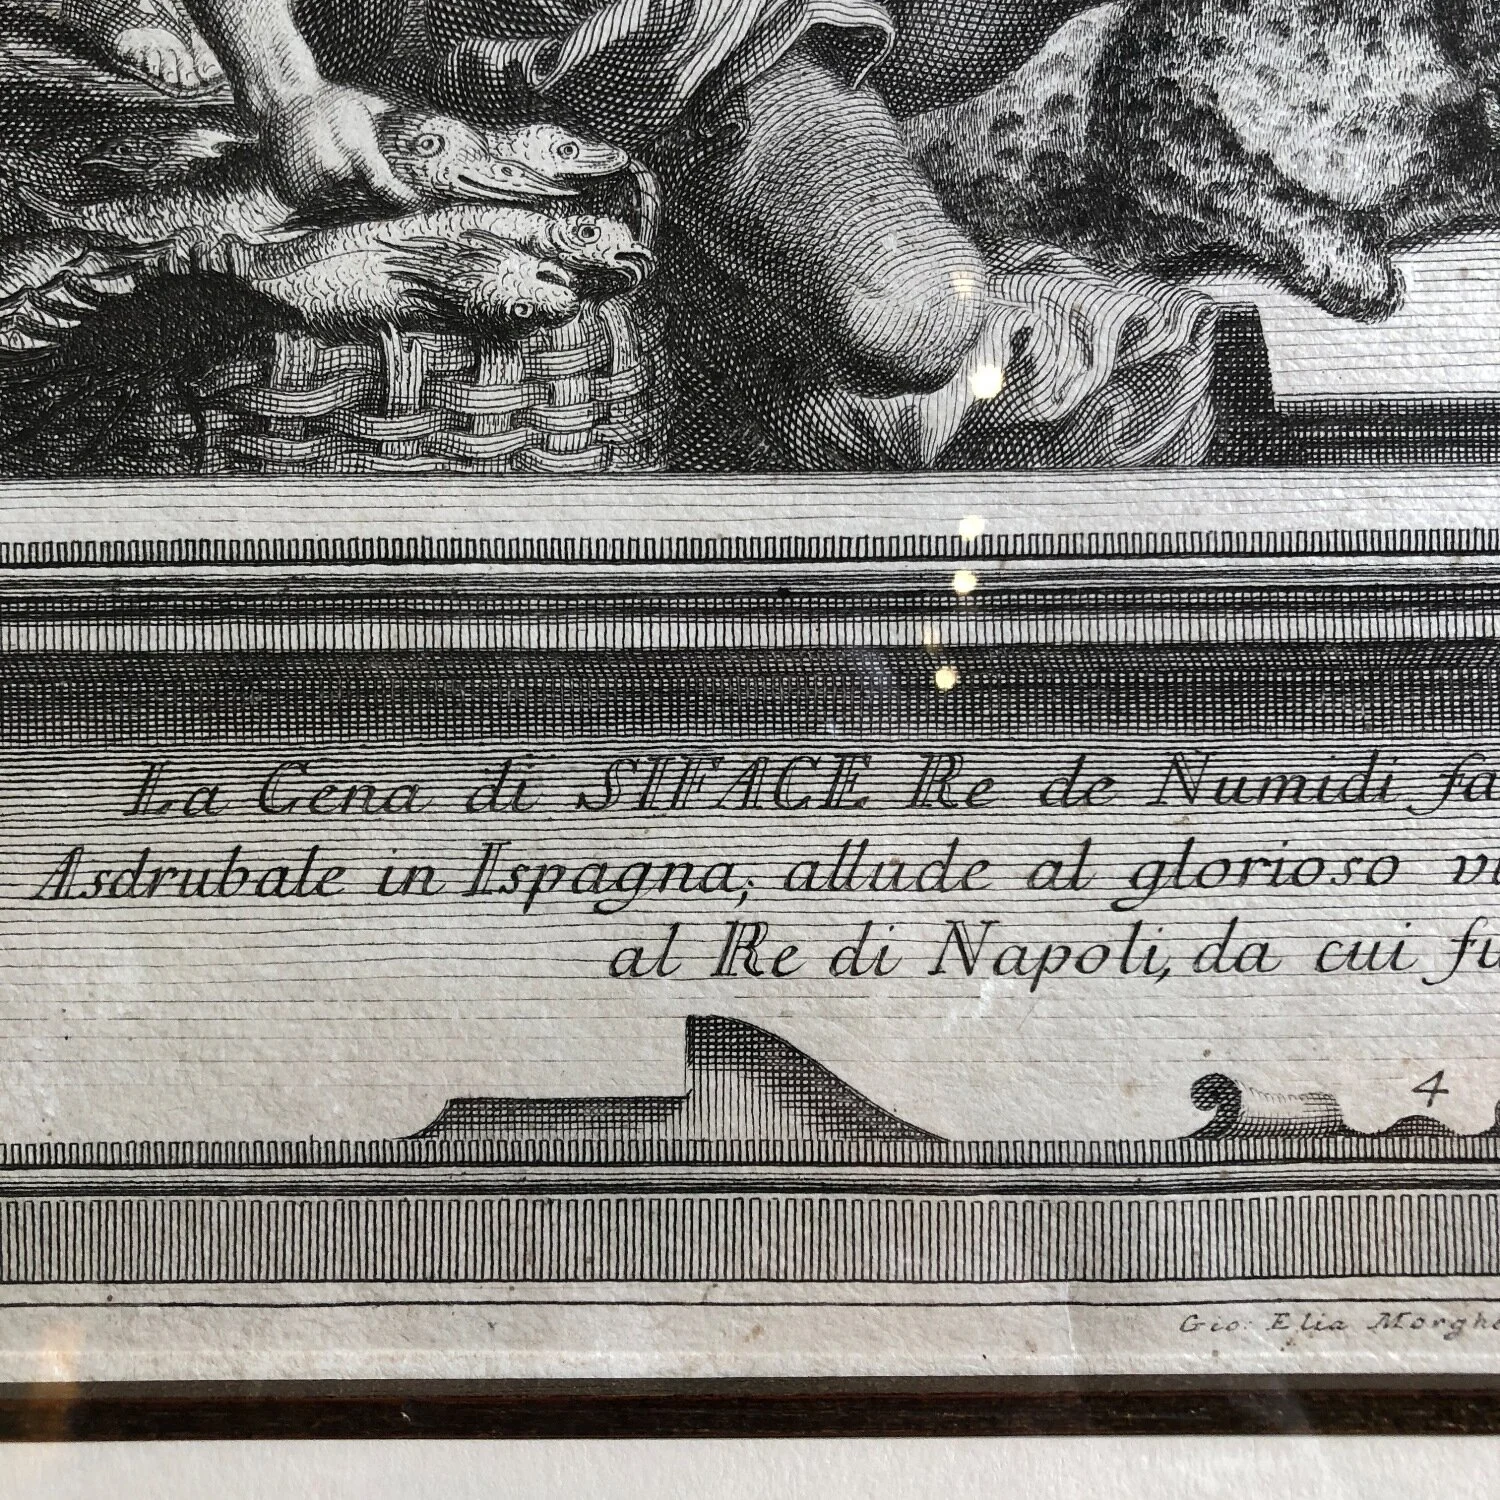 La Cena di SIFACE Re de Numidi fa
Asdrubale in Ispagna, allude al glorioso
al Re di Napoli, da cui fu
4
Gio: Elia Morghe